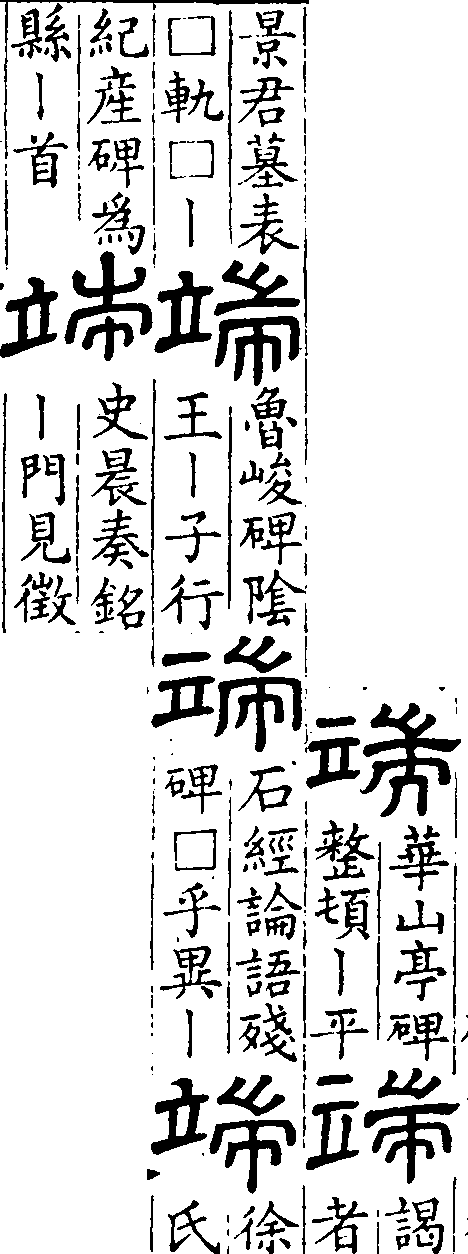 端
華山亭碑
整頓丨平
端
謁
者
景君墓表
□軌□丨
端
魯峻碑陰
王丨子行
端
石經論語殘
碑□乎異丨
端
徐
氏
紀産碑爲
縣丨首
端
史晨奏銘
丨門見徵